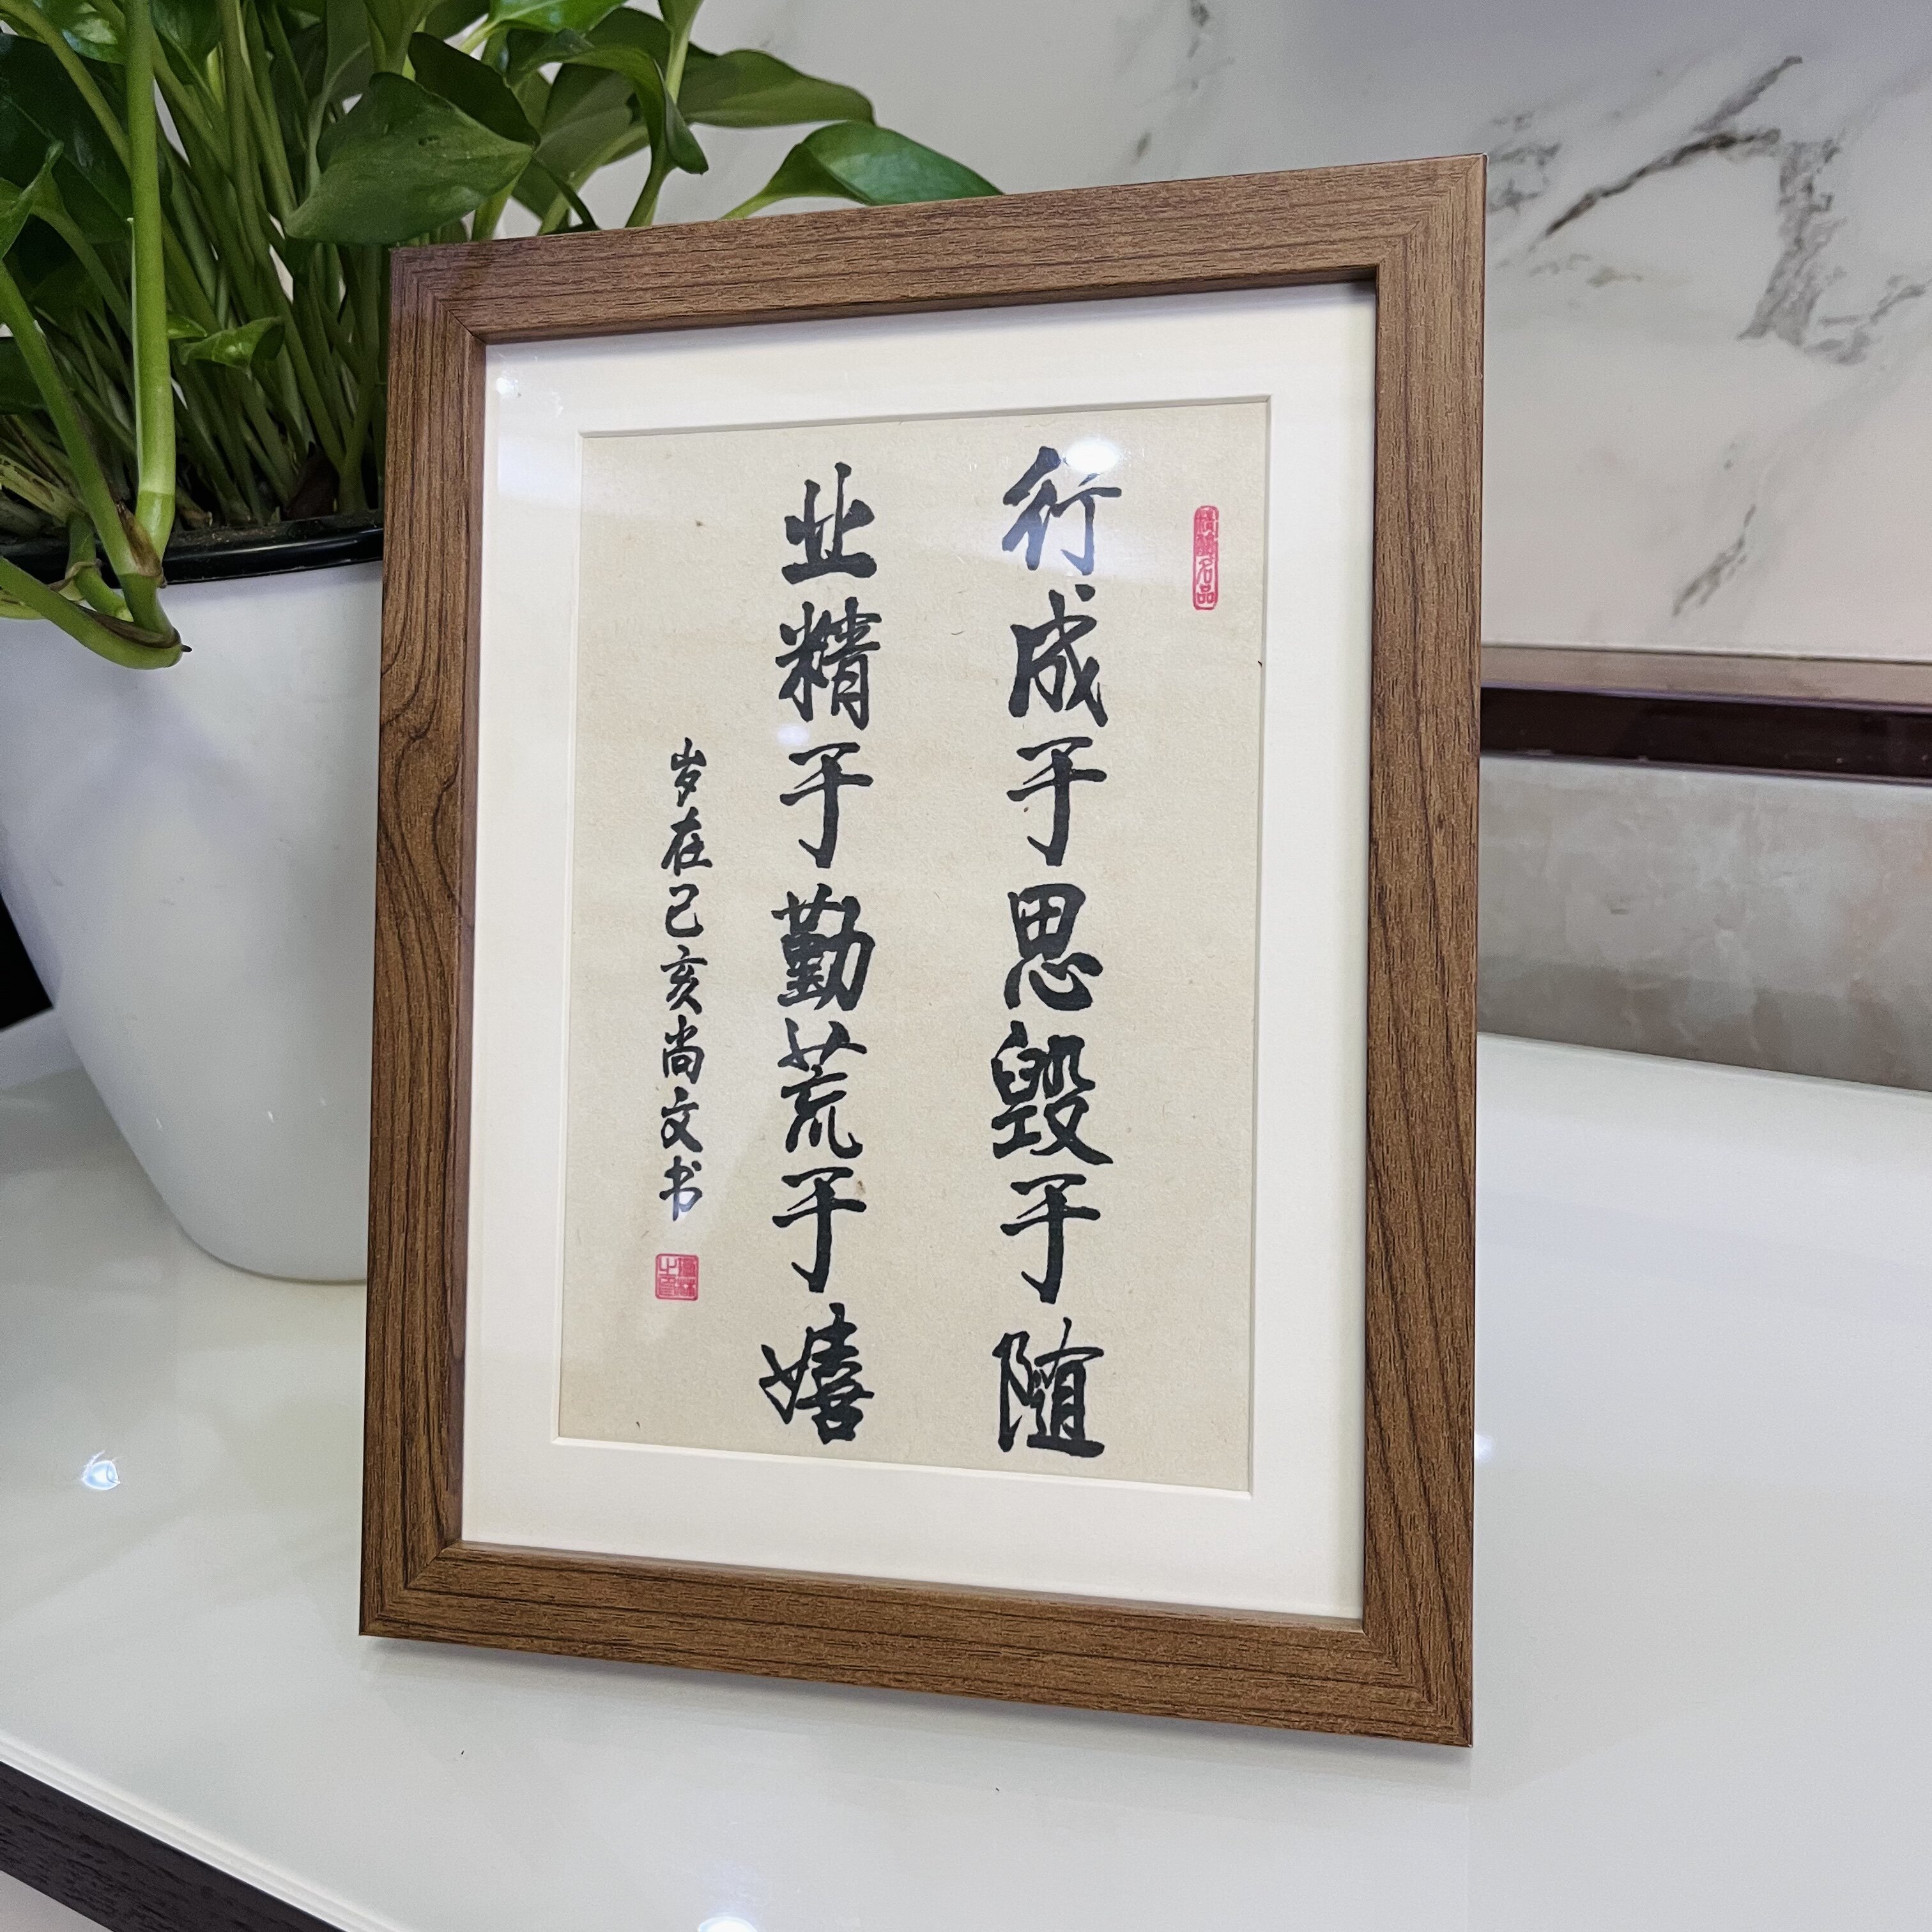 行成于思毁于随
业精于勤荒于嬉
岁在己亥尚文书